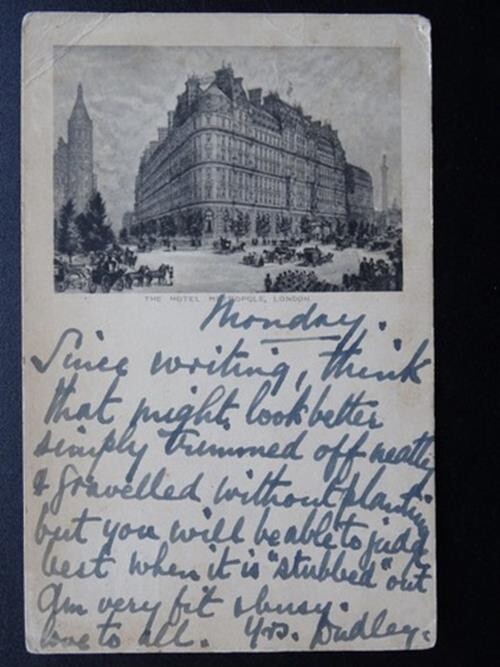 THE HOTEL METROPOLE, LONDON
Monday.
Since writing, think
that might look better
simply trimmed off neatly
& gravelled without planting
but you will be able to judge
best when it is "stubbed" out
Am very fit & busy.
love to all. Yrs. Dudley.